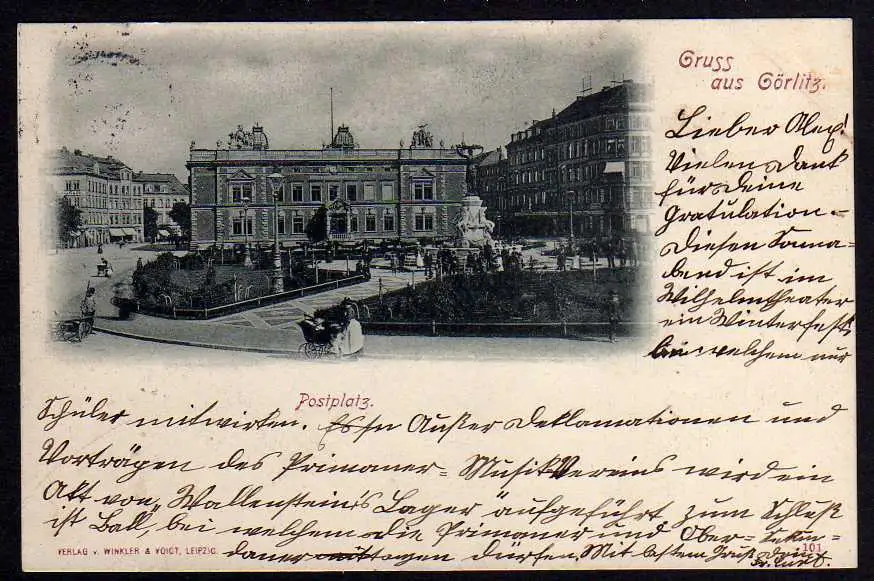 Gruss
aus Görlitz.
Lieber Alex!
Vielen Dank
für Deine
Gratulation.
Diesen Sonna-
bend ist im
Wilhelmtheater
ein Winterfest,
bei welchem nur
Postplatz.
Schüler mitwirken. Außer Deklamationen und
Vorträgen des Primaner-Musikvereins wird ein
Akt von „Wallenstein's Lager" aufgeführt zum Schluß
ist Ball, bei welchem die Primaner und Ober-Sekun-
daner tanzen dürfen. Mit bestem Gruß Dein
VERLAG v. WINKLER & VOIGT, LEIPZIG.
101